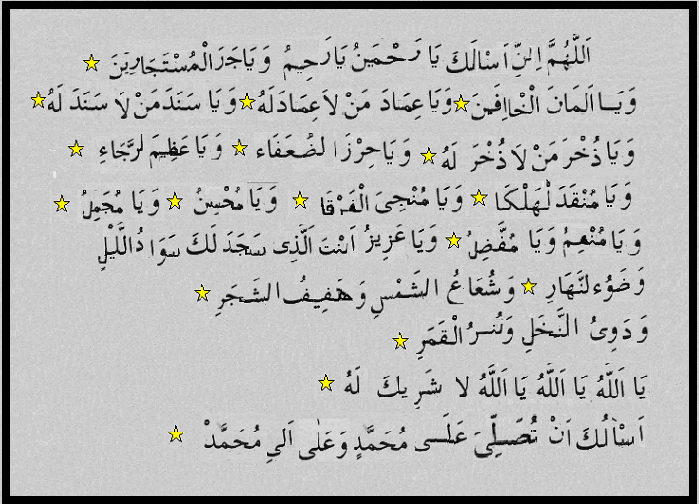 اَللّٰهُمَّ اِنّٰی اَسْالَكَ یَا رَحْمَیٰنُ یَارَحِیمُ وَیَاجَرَالْمُسْتَجَارِینَ
وَیَا اَمَانَ الْخَاافِینَ وَیَا عِمَادَ مَنْ لاَعِمَادَلَهُ وَیَا سَنَدَمَنْ لاَ سَنَدَ لَهُ
وَیَا ذُخْرَ مَنْ لاَذُخْرَ لَهُ وَیَاحِرْزَا لضُعَفَاء وَیَا عَظِیمَ لرَّجَاءِ
وَیَا مُنْقَدَلْهَلْكَا وَیَا مُنْجِیَ الْغَرْقَا وَیَا مُحْسِنُ وَیَا مُجْمِلُ
وَیَا مُنْعِمُ وَیَا مُفَّضِلُ وَیَا عَزِیزُ اَنْتَ الَّذِی سَجَدَ لَكَ سَوَادُالَّلیْلِ
وَضَوْءلنَّهَارِ وَشُعَاعُ الشَّمْسِ وَهَفِیفُ الشَجَرِ
وَدَوِیُ النَّخَلِ وَنُسرُ الْقَمَرِ
یَا اَللّٰهُ یَا اَللّٰهُ یَا اَللّٰهُ لا شَرِیكَ لَهُ
اَسْاٰلُكَ اَنْ تُصَلِّیَ عَلَی مُحَمَّدٍ وَعَلٰی اٰلِ مُحَمَّدْ